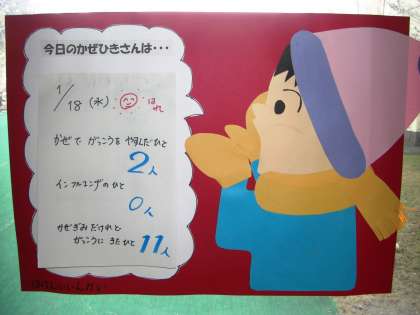 今日のかぜひきさんは・・・
1/18 (水) はれ
かぜで がっこうを やすんだひと
2人
インフルエンザのひと
0人
かぜぎみだけれど
がっこうに きたひと 11人
ほけんいいんかい